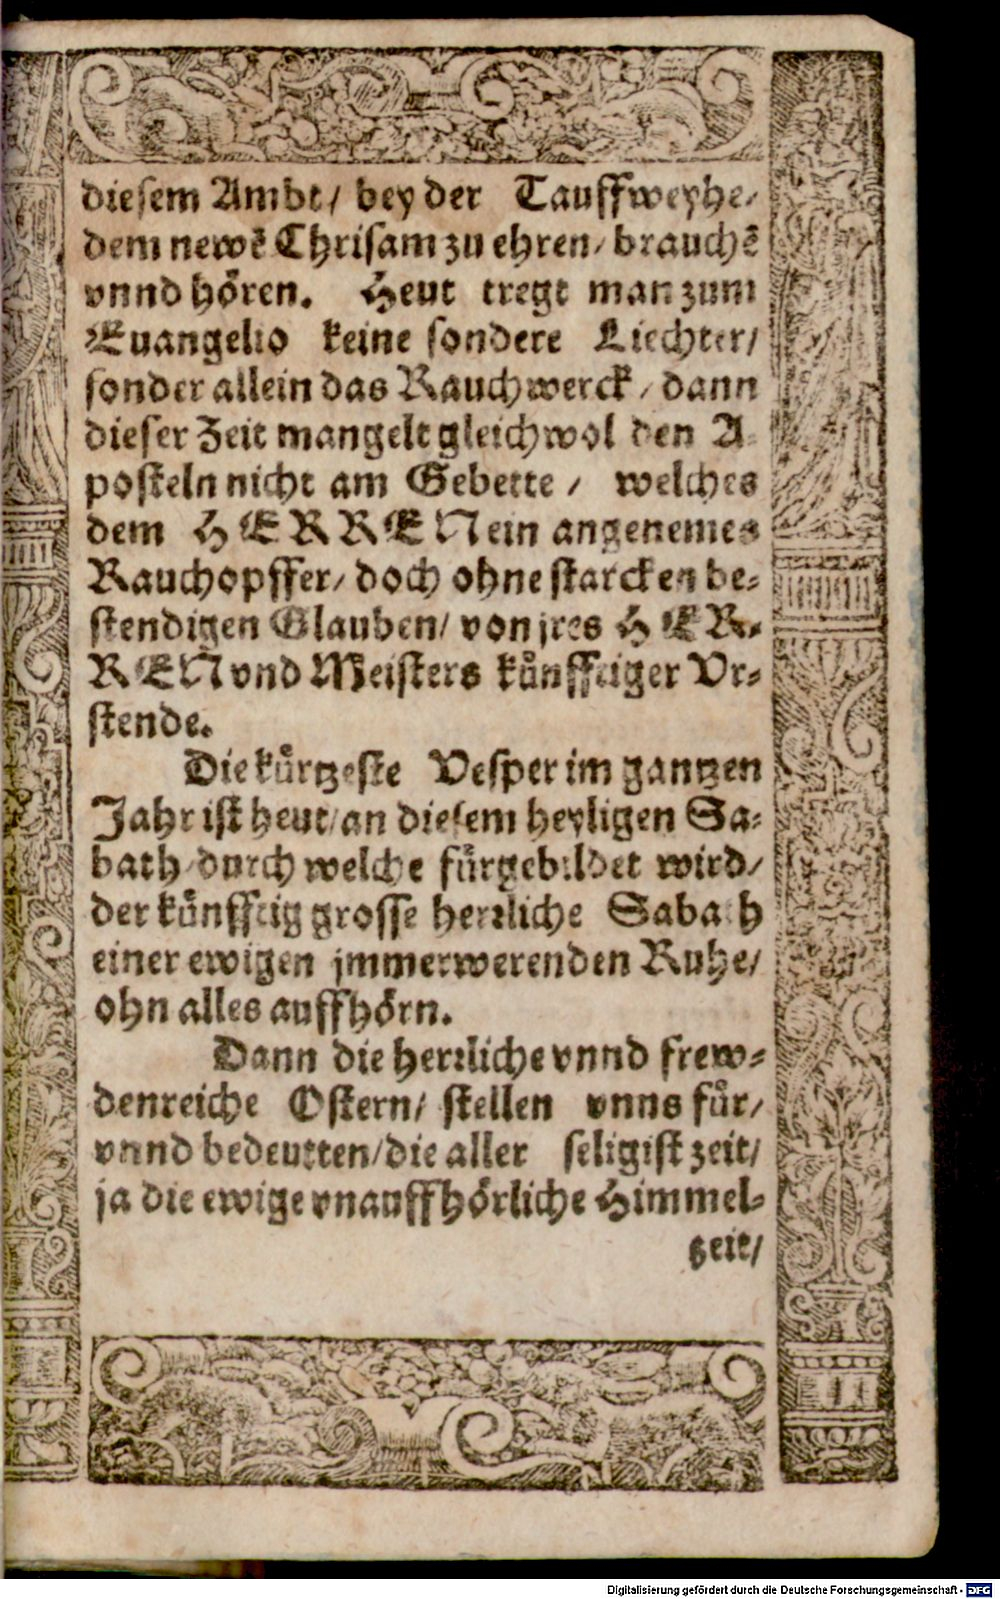 diesem Ambt/ bey der Tauffweyhe/
dem newẽ Chrisam zu ehren/ brauchẽ
vnnd hören. Heut tregt man zum
Euangelio keine sondere Liechter/
sonder allein das Rauchwerck/ dann
dieser Zeit mangelt gleichwol den A-
posteln nicht am Gebette/ welches
dem HERREN ein angenemes
Rauchopffer/ doch ohne starcken be-
stendigen Glauben/ von jres HER-
REN vnd Meisters künfftiger Vr-
stende.
Die kürtzeste Vesper im gantzen
Jahr ist heut/ an diesem heyligen Sa-
bath/ durch welche fürgebildet wird/
der künfftig grosse herrliche Sabath
einer ewigen jmmerwerenden Ruhe/
ohn alles auffhörn.
Dann die herrliche vnnd frew-
denreiche Ostern/ stellen vnns für/
vnnd bedeutten/ die aller seligist zeit/
ja die ewige vnauffhörliche Himmel-
zeit/
Digitalisierung gefördert durch die Deutsche Forschungsgemeinschaft - DFG